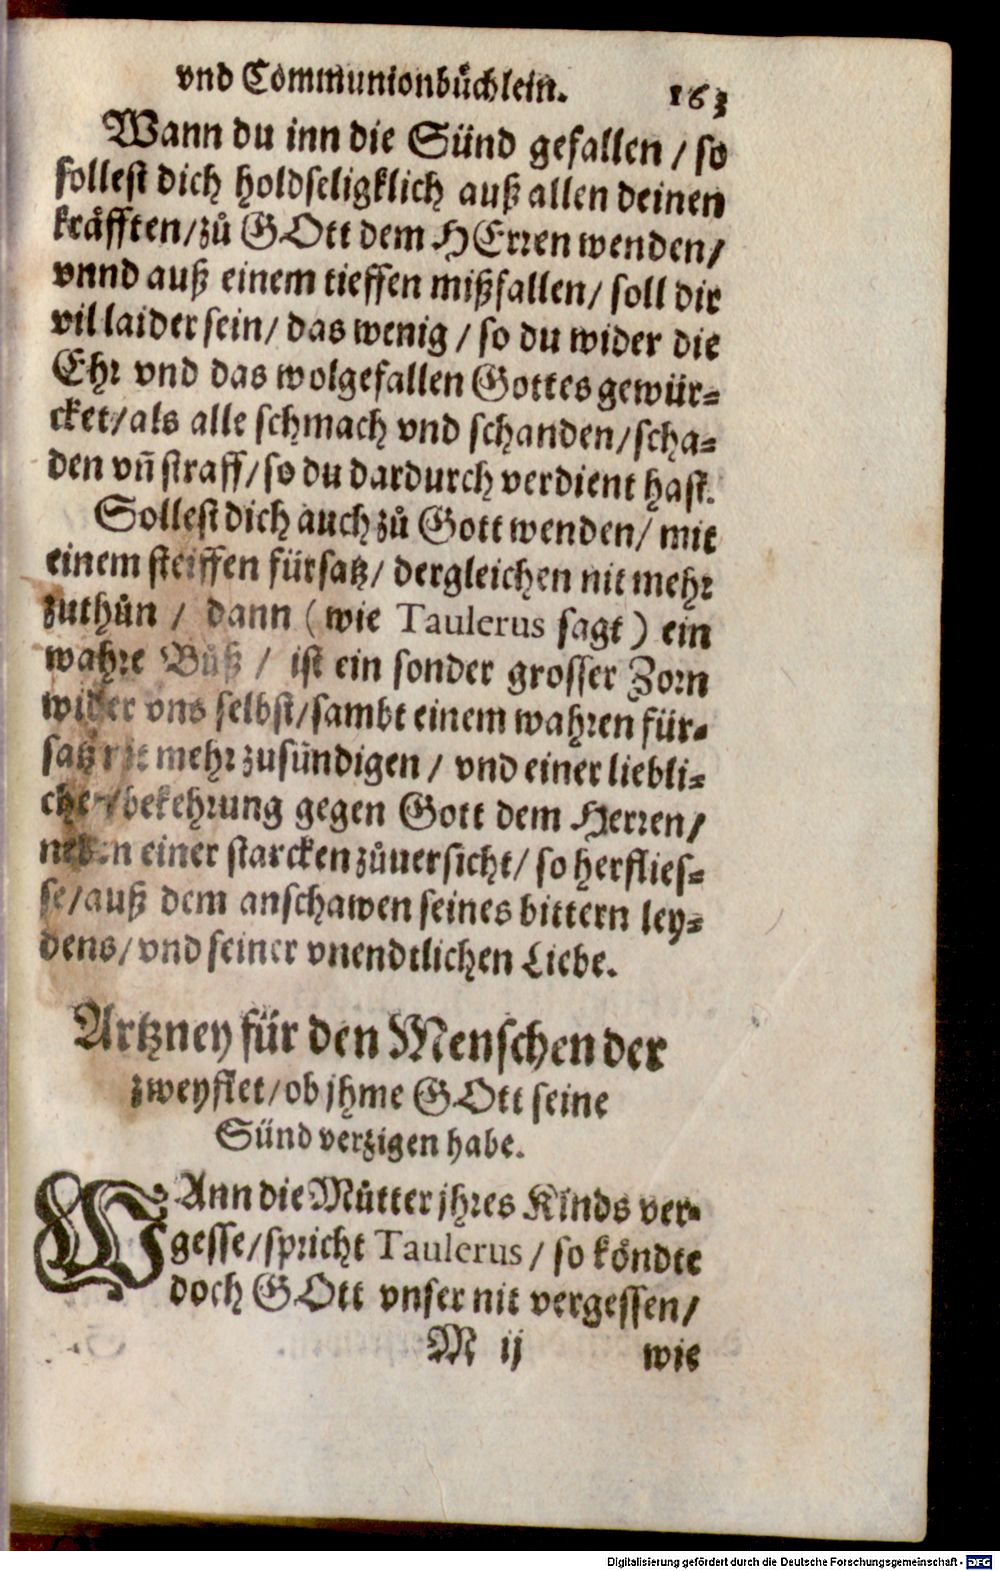 vnd Communionbüchlein. 163
Wann du inn die Sünd gefallen / so
sollest dich holdseligklich auß allen deinen
kräfften / zů GOtt dem HErren wenden /
vnnd auß einem tieffen mißfallen / soll dir
vil laider sein / das wenig / so du wider die
Ehr vnd das wolgefallen Gottes gewür-
cket / als alle schmach vnd schanden / scha-
den vñ straff / so du dardurch verdient hast.
Sollest dich auch zů Gott wenden / mit
einem steiffen fürsatz / dergleichen nit mehr
zuthůn / dann (wie Taulerus sagt) ein
wahre Bůß / ist ein sonder grosser Zorn
wider vns selbst / sambt einem wahren für-
satz nit mehr zusündigen / vnd einer liebli-
chen / bekehrung gegen Gott dem Herren /
neben einer starcken zůuersicht / so herflies-
se / auß dem anschawen seines bittern ley-
dens / vnd seiner vnendtlichen Liebe.
Artzney für den Menschen der
zweyflet / ob jhme GOtt seine
Sünd verzigen habe.
WAnn die Můtter jhres Kinds ver-
gesse / spricht Taulerus / so köndte
doch GOtt vnser nit vergessen /
M ij wie
Digitalisierung gefördert durch die Deutsche Forschungsgemeinschaft - DFG